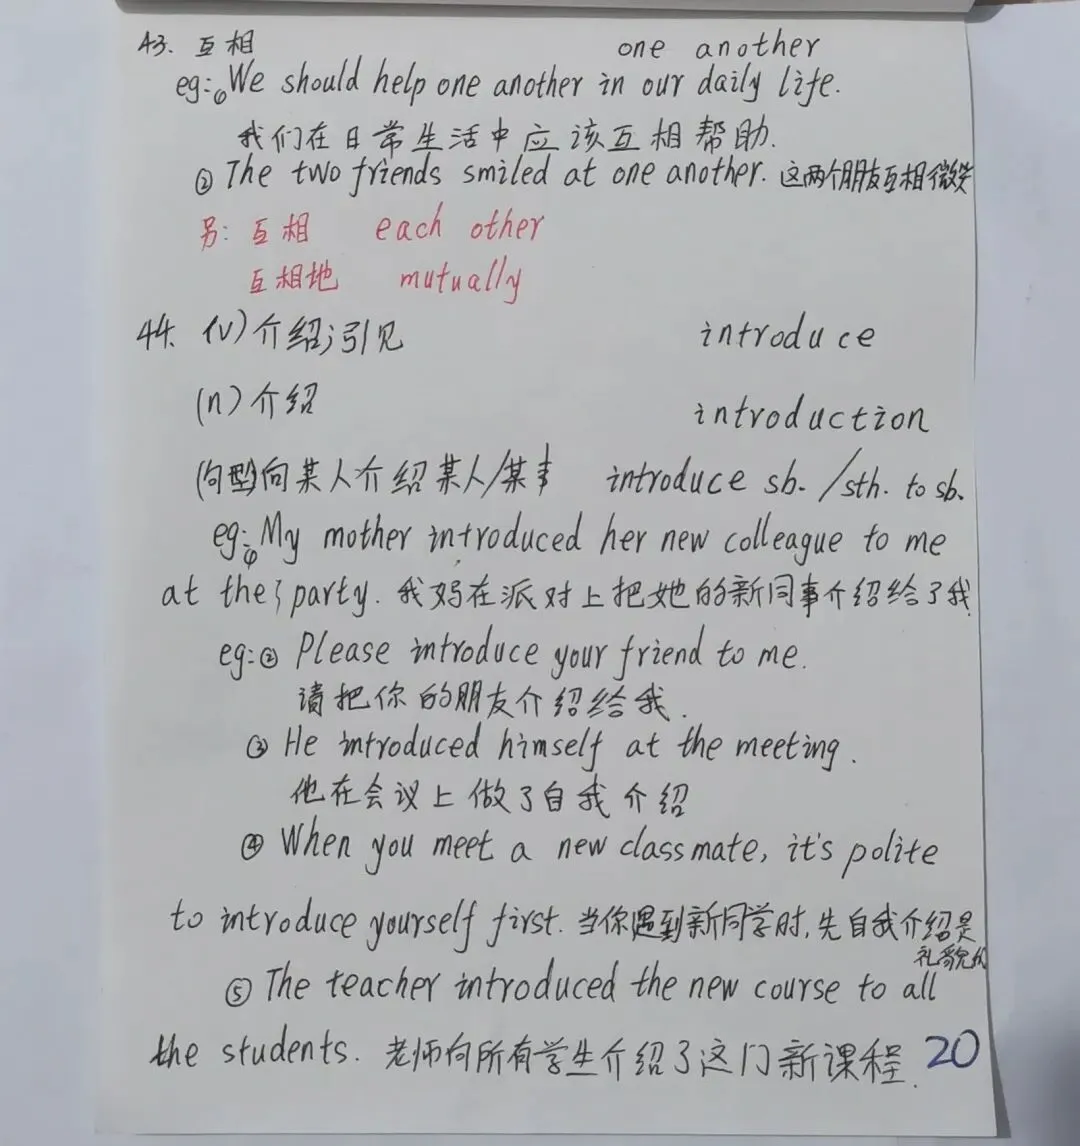 43. 互相 one another
eg:① We should help one another in our daily life.
我们在日常生活中应该互相帮助.
② The two friends smiled at one another. 这两个朋友互相微笑
另: 互相 each other
互相地 mutually
44. (v)介绍;引见 introduce
(n)介绍 introduction
(句型)向某人介绍某人/某事 introduce sb./sth. to sb.
eg:① My mother introduced her new colleague to me
at the party. 我妈在派对上把她的新同事介绍给了我
eg:② Please introduce your friend to me.
请把你的朋友介绍给我.
③ He introduced himself at the meeting.
他在会议上做了自我介绍
④ When you meet a new classmate, it's polite
to introduce yourself first. 当你遇到新同学时,先自我介绍是
礼貌的
⑤ The teacher introduced the new course to all
the students. 老师向所有学生介绍了这门新课程.
20